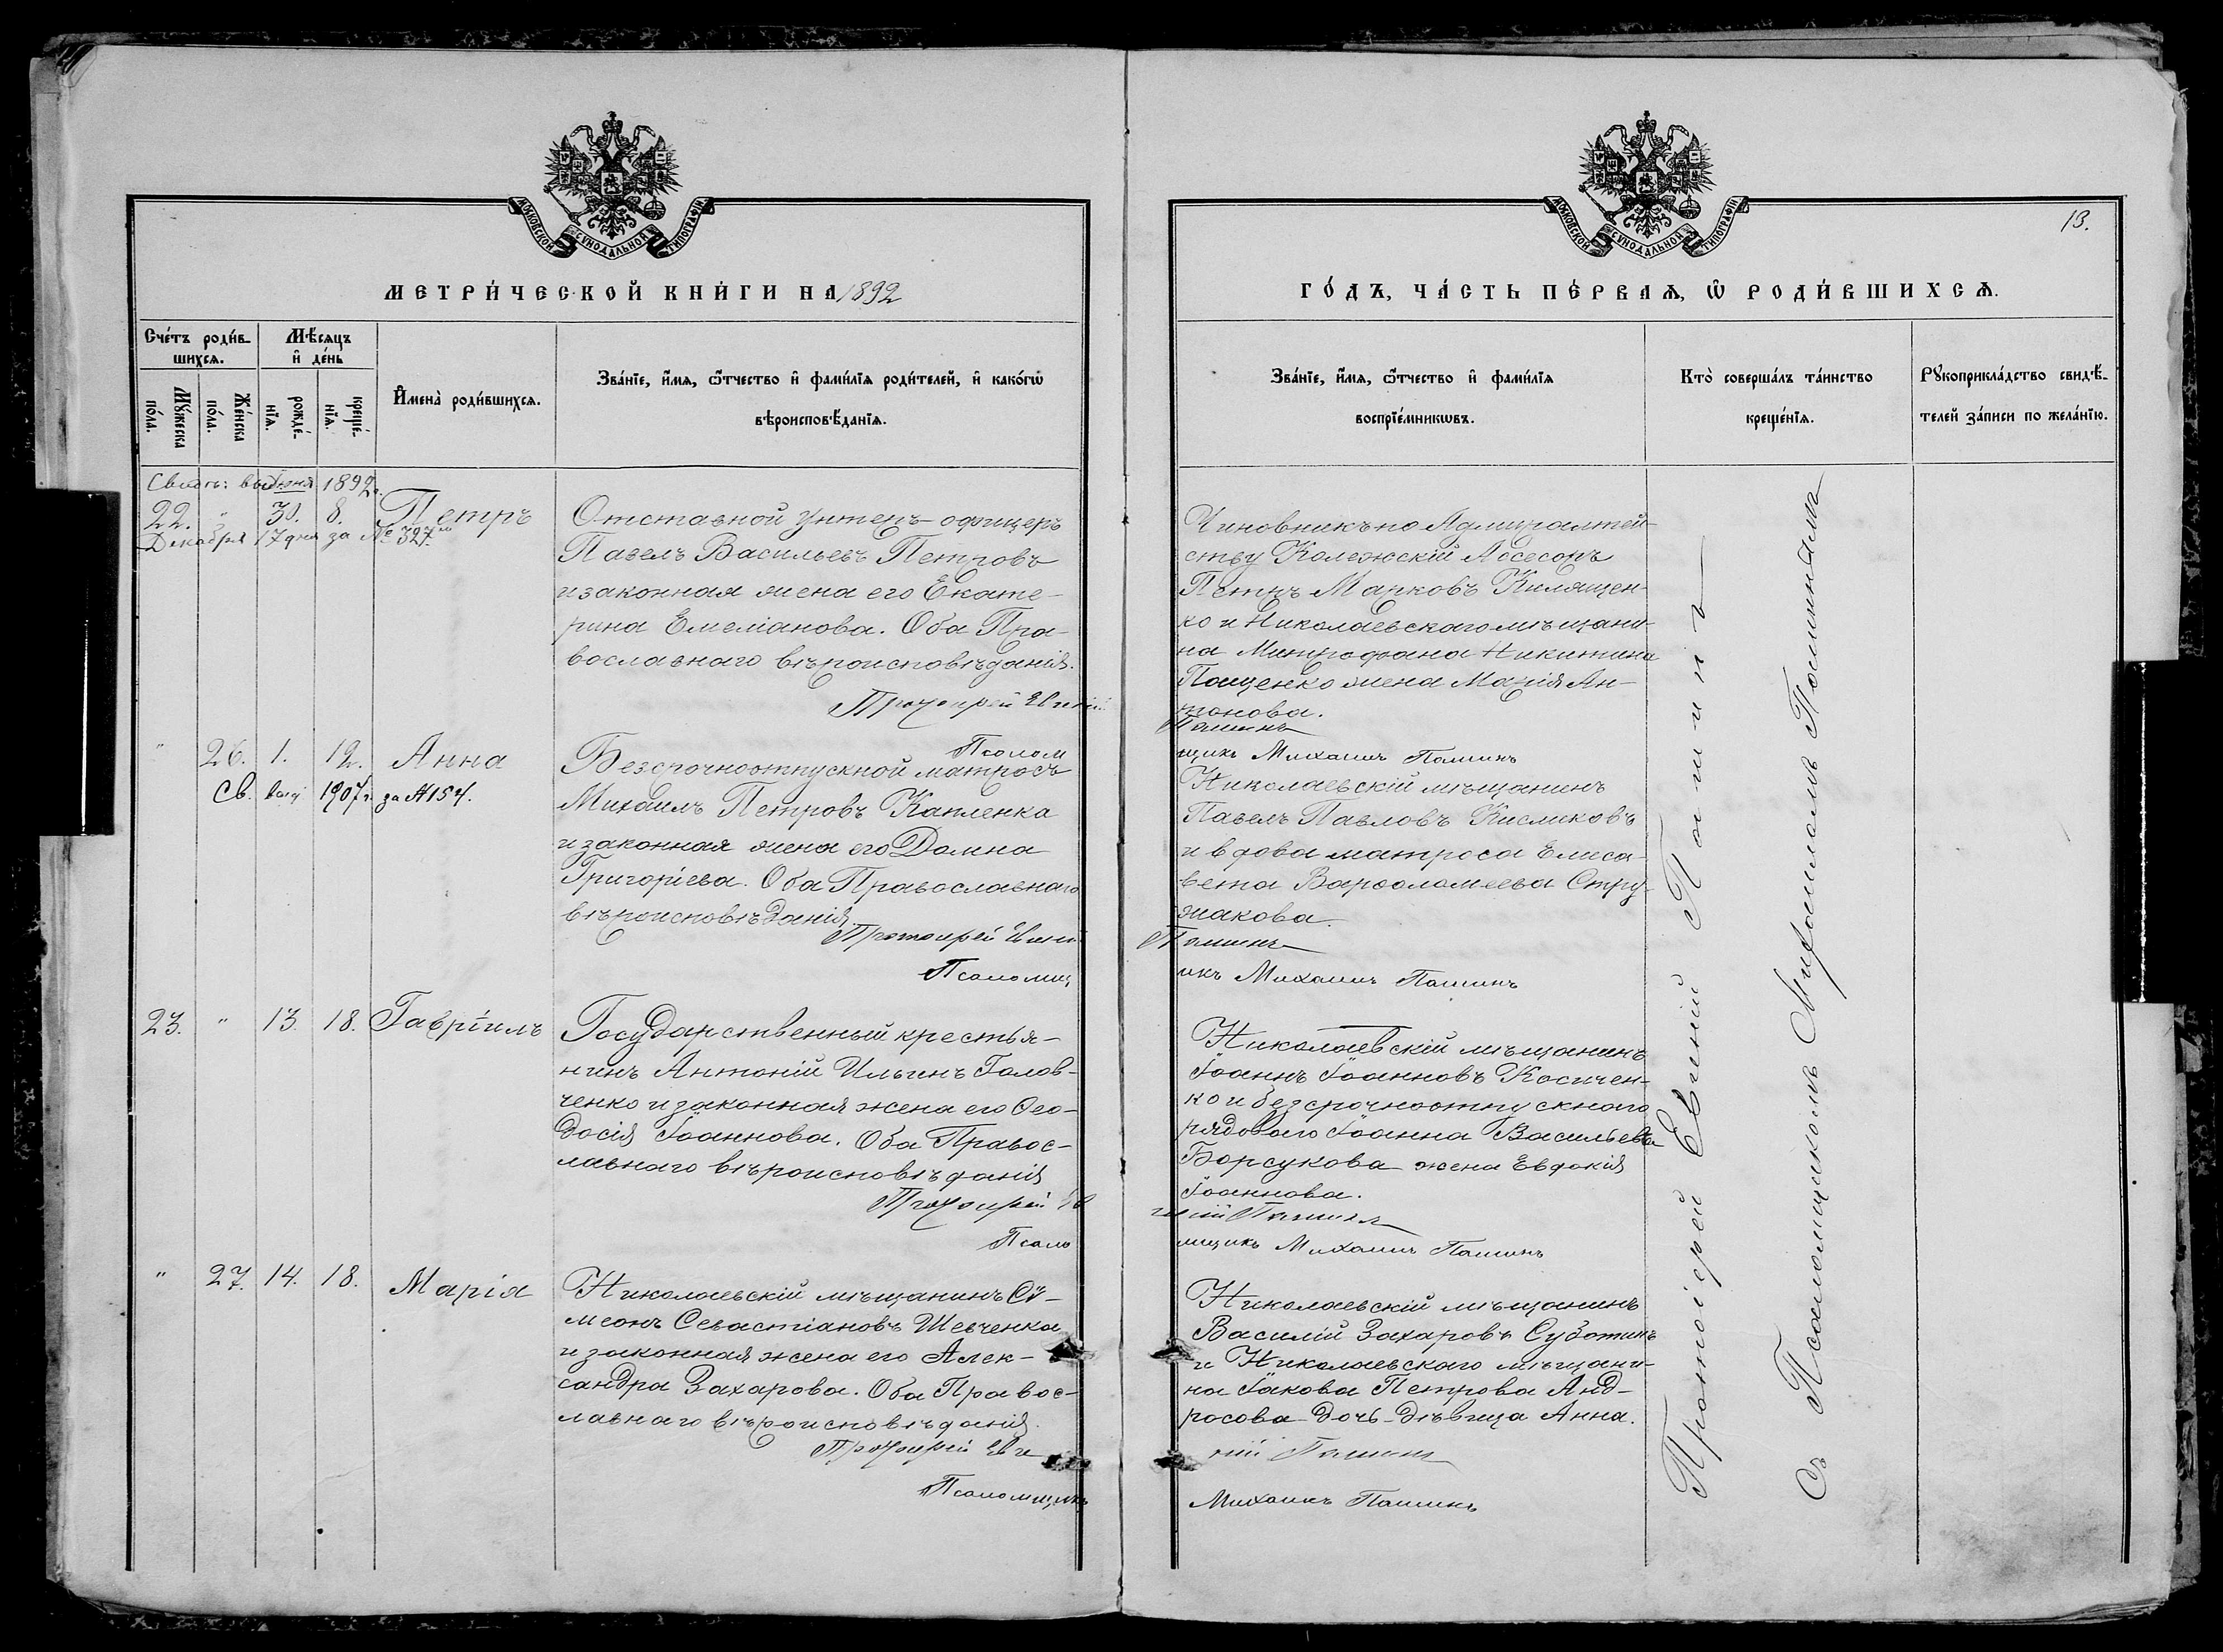 МОСКОВСКОЙ СѴНОДАЛЬНОЙ ТИПОГРАФІИ
МЕТРИ́ЧЕСКОЙ КНИ́ГИ НА 1892
Сче́тъ роди́в-
шихсѧ.
Мѣ́сѧцъ
и҆ де́нь
Мꙋ́жеска
по́ла.
Же́нска
по́ла.
рожде́-
нїѧ.
креще́-
нїѧ.
И҆мена̀ роди́вшихсѧ.
Зва́нїе, и҆́мѧ, ѻ҆́тчество и҆ фами́лїѧ роди́телей, и҆ како́гѡ
вѣроисповѣ́данїѧ.
1892
22. " 30. 8. Петръ
Декабря 17 дня за № 327
Отставной унтеръ-офицеръ
Павелъ Васильевъ Петровъ
и законная жена его Екате-
рина Емеліанова. Оба Пра-
вославнаго вѣроисповѣданія.
Протоіерей Евгеній
Псалом
" 26. 1. 12. Анна
Св. выд 1907 г. за № 154.
Безсрочноотпускной матросъ
Михаилъ Петровъ Капленка
и законная жена его Домна
Григоріева. Оба Православнаго
вѣроисповѣданія.
Протоіерей Евгеній
Псаломщ
23. " 13. 18. Гавріилъ
Государственный крестья-
нинъ Антоній Ильинъ Голов-
ченко и законная жена его Ѳео-
досія Іоаннова. Оба Правос-
лавнаго вѣроисповѣданія
Протоіерей Ев
Псало
" 27. 14. 18. Марія
Николаевскій мѣщанинъ Сѵ-
меонъ Севастіановъ Шевченка
и законная жена его Алек-
сандра Захарова. Оба Правос-
лавнаго вѣроисповѣданія.
Протоіерей Евге
Псаломщикъ
МОСКОВСКОЙ СѴНОДАЛЬНОЙ ТИПОГРАФІИ
13.
ГО́ДЪ, ЧА́СТЬ ПЕ́РВАѦ, Ѡ҆ РОДИ́ВШИХСѦ.
Зва́нїе, и҆́мѧ, ѻ҆́тчество и҆ фами́лїѧ
воспрїе́мникѡвъ.
Кто̀ соверша́лъ та́инство
креще́нїѧ.
Рꙋкоприкла́дство свидѣ́-
телей за́писи по жела́нїю.
Чиновникъ по Адмиралтей-
ству Колежскій Ассесоръ
Петръ Марковъ Килящен-
ко и Николаевскаго мѣщани-
на Митрофана Никитина
Пащенко жена Марія Ан-
тонова.
Пашинъ
щикъ Михаилъ Пашинъ
Николаевскій мѣщанинъ
Павелъ Павловъ Кисликовъ
и вдова матроса Елиса-
вета Варѳоломеева Стру-
жакова.
Пашинъ
икъ Михаилъ Пашинъ
Николаевскій мѣщанинъ
Іоаннъ Іоанновъ Косичен-
ко и безсрочноотпускнаго
рядоваго Іоанна Васильева
Борсукова жена Евдокія
Іоаннова.
геній Пашинъ
мщикъ Михаилъ Пашинъ
Николаевскій мѣщанинъ
Василій Захаровъ Суботинъ
и Николаевскаго мѣщани-
на Іакова Петрова Анд-
росова дочь-дѣвица Анна.
ній Пашинъ
Михаилъ Пашинъ
Протоіерей Евгеній Пашинъ
съ Псаломщикомъ Михаиломъ Пашинымъ